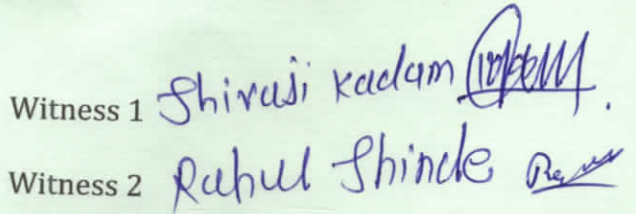 Witness 1 Shivaji Kadam
Witness 2 Rahul Shinde